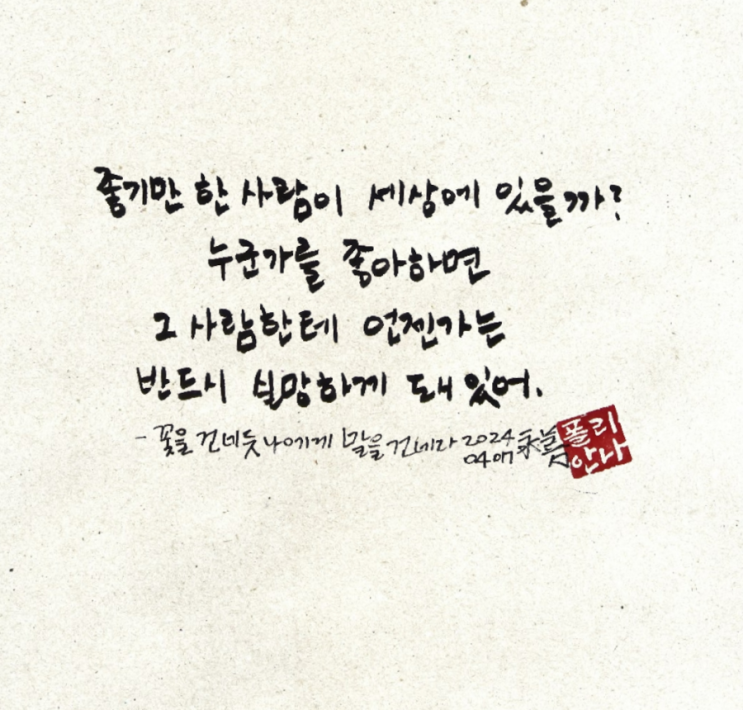 좋기만 한 사람이 세상에 있을까?
누군가를 좋아하면
그 사람한테 언젠가는
반드시 실망하게 돼 있어.
- 꽃을 건네듯 나에게 말을 건네라 2024
04 07
폴리
안나